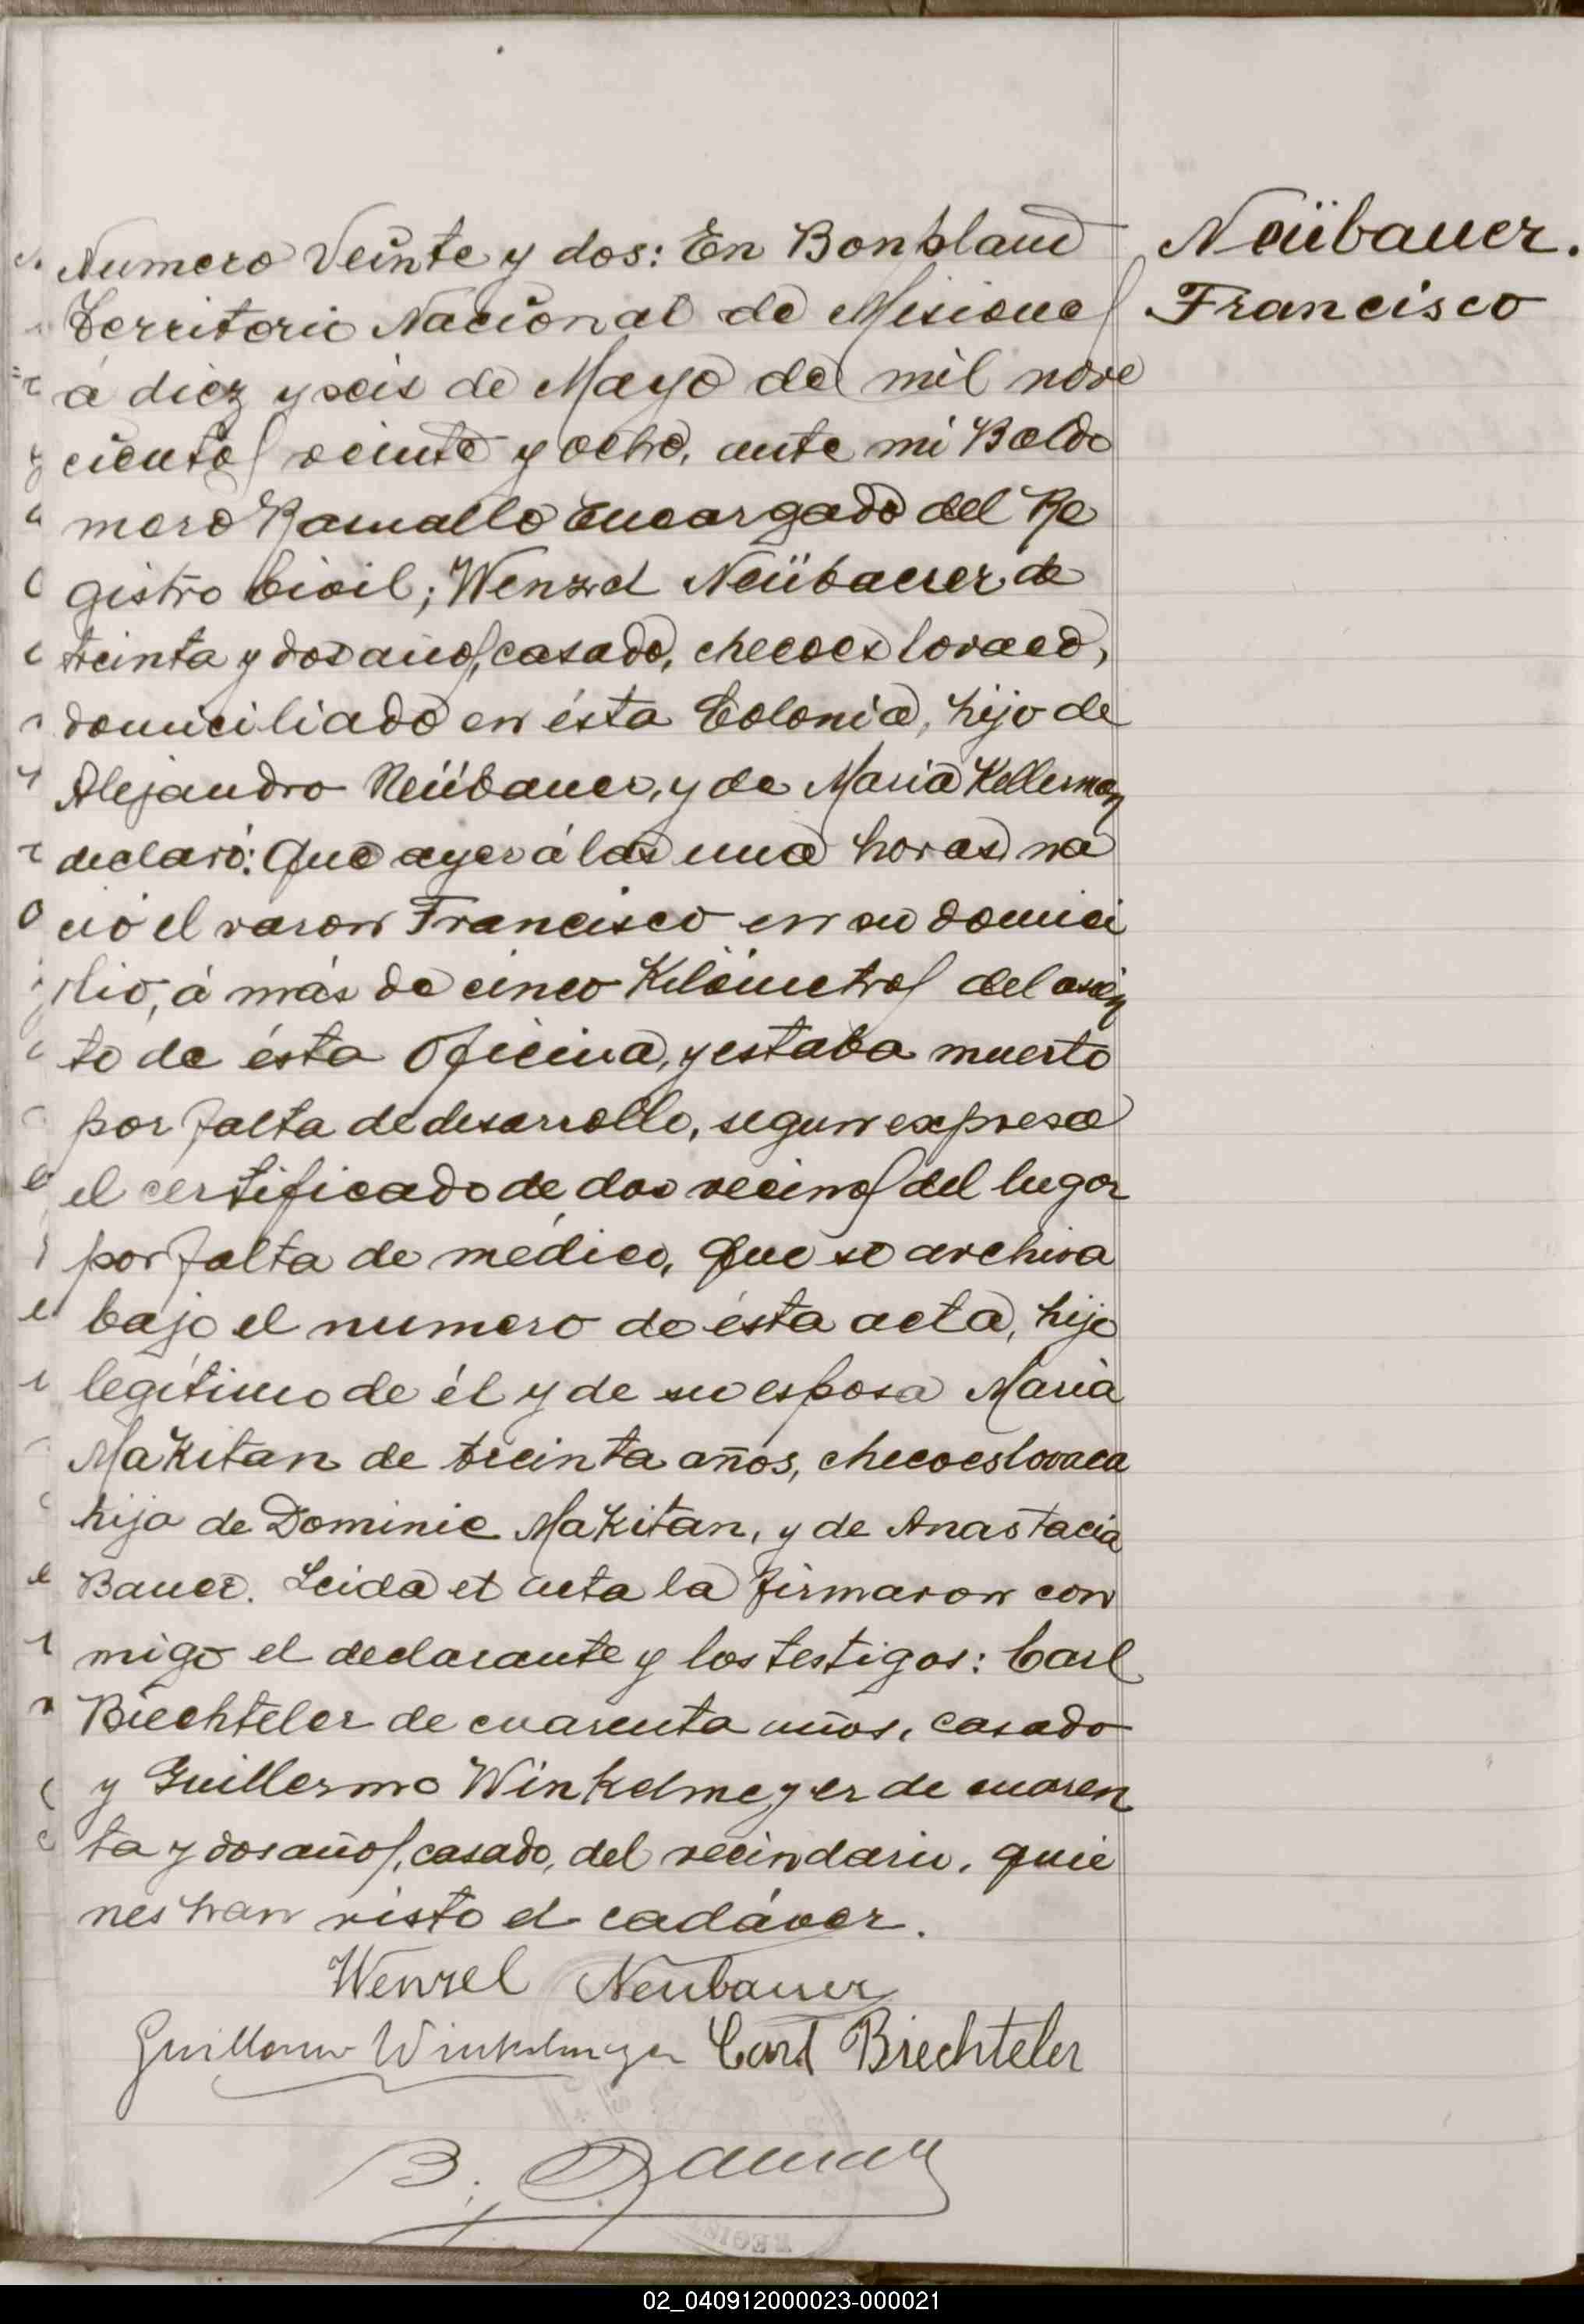 Neübauer.
Francisco
Numero Veinte y dos: En Bonpland
Territorio Nacional de Misiones
á diez y seis de Mayo de mil nove
cientos veinte y ocho, ante mi Baldo
mero Ramallo Encargado del Re
gistro Civil; Wenzel Neübauer de
treinta y dos años, casado, checoeslovaco,
domiciliado en ésta Colonia, hijo de
Alejandro Neübauer, y de Maria Kellerman
declaró: Que ayer á las una horas na
ció el varon Francisco en su domici
lio, á más de cinco Kilómetros del asien
to de ésta Oficina, y estaba muerto
por falta de desarrollo, segun expresa
el certificado de dos vecinos del lugar
por falta de médico, que se archiva
bajo el numero de ésta acta, hijo
legítimo de él y de su esposa Maria
Makitan de treinta años, checoeslovaca
hija de Dominic Makitan, y de Anastacia
Bauer. Leida el acta la firmaron con
migo el declarante y los testigos: Carl
Biechteler de cuarenta años, casado
y Guillermo Winkelmeyer de cuaren
ta y dos años, casado, del vecindario, quie
nes han visto el cadáver.
Wenzel Neubauer
Guillermo Winkelmeyer Carl Biechteler
B.
02_040912000023-000021